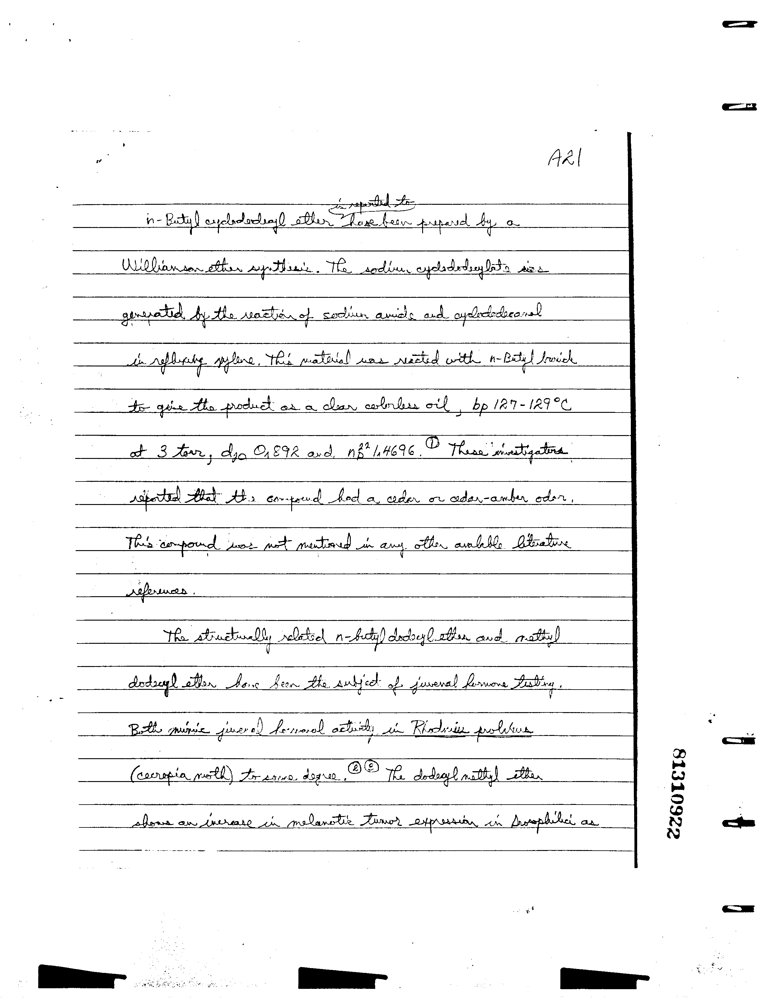 A21
is reported to
n-Butyl cyclododecyl ether have been prepared by a
Williamson ether synthesis. The sodium cyclododecylate was
generated by the reaction of sodium amide and cyclododecanol
in refluxing xylene. This material was reacted with n-Butyl
to give the product as a clear colorless oil, bp 127-129°C
at 3 torr, d20 0.892 and nD22 1.4696. ① These investigators
reported that the compound had a cedar or cedar-amber odor.
This compound was not mentioned in any other available literature
references.
The structurally related n-butyl dodecyl ether and methyl
dodecyl ether have been the subject of juvenal hormone testing.
Both mimic juvenal hormonal activity in Rhodnius prolixus
(cecropia moth) to some degree. ② The dodecyl methyl ether
shows an increase in melanotic tumor expression in as
81310922